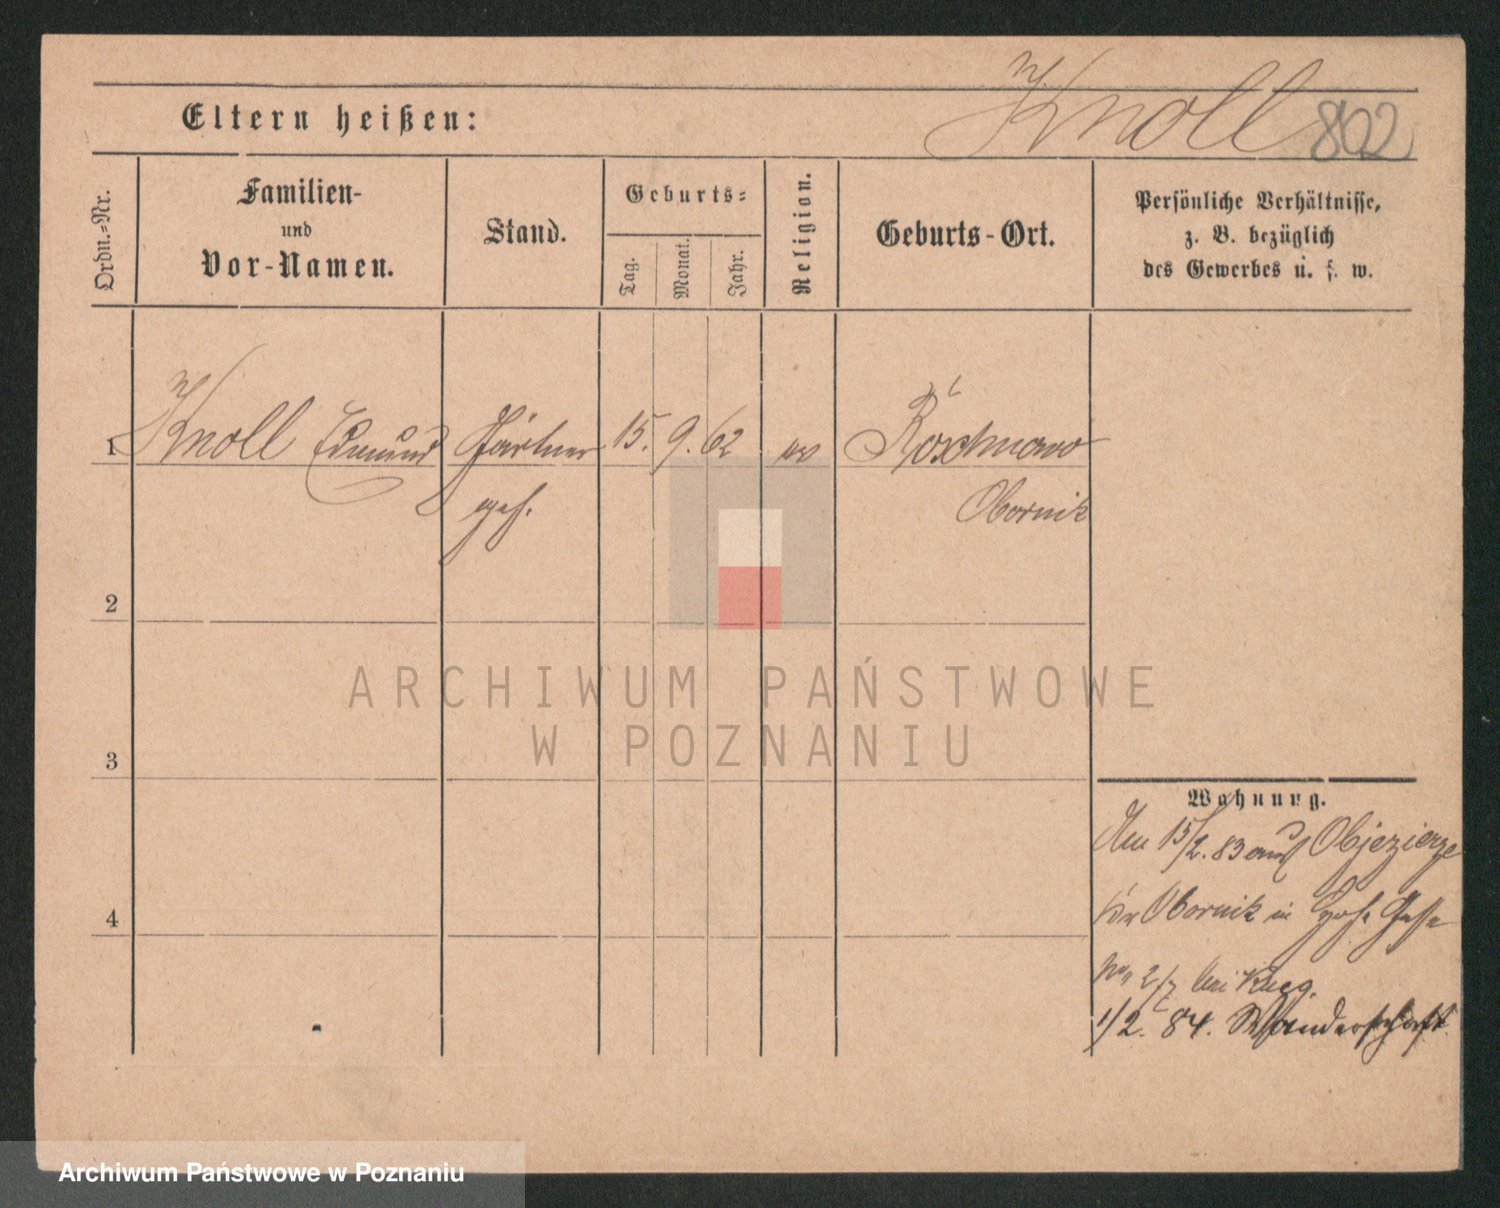 Knoll 802
Eltern heißen:
Ordn.-Nr.
Familien-
und
Vor-Namen.
Stand.
Geburts-
Tag.
Monat.
Jahr.
Religion.
Geburts-Ort.
Persönliche Verhältnisse,
z. B. bezüglich
des Gewerbes u. s. w.
1 Knoll Edmund Gärtner 15. 9. 62 ev
geh. Obornik
2
3
4
Wohnung.
15/2. 83 aus Objezierze
Obornik in
1/2. 84. Wanderschaft
ARCHIWUM PAŃSTWOWE
W POZNANIU
Archiwum Państwowe w Poznaniu